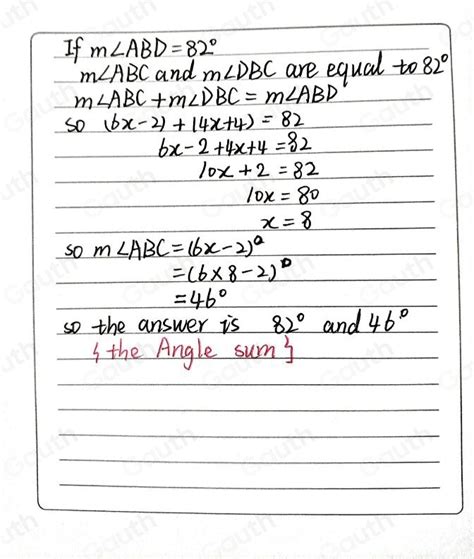 If m∠ABD = 82°
m∠ABC and m∠DBC are equal to 82°
m∠ABC + m∠DBC = m∠ABD
so (6x-2) + (4x+4) = 82
6x-2+4x+4 = 82
10x + 2 = 82
10x = 80
x = 8
so m∠ABC = (6x-2)°
= (6×8-2)°
= 46°
so the answer is 82° and 46°
{the Angle sum}